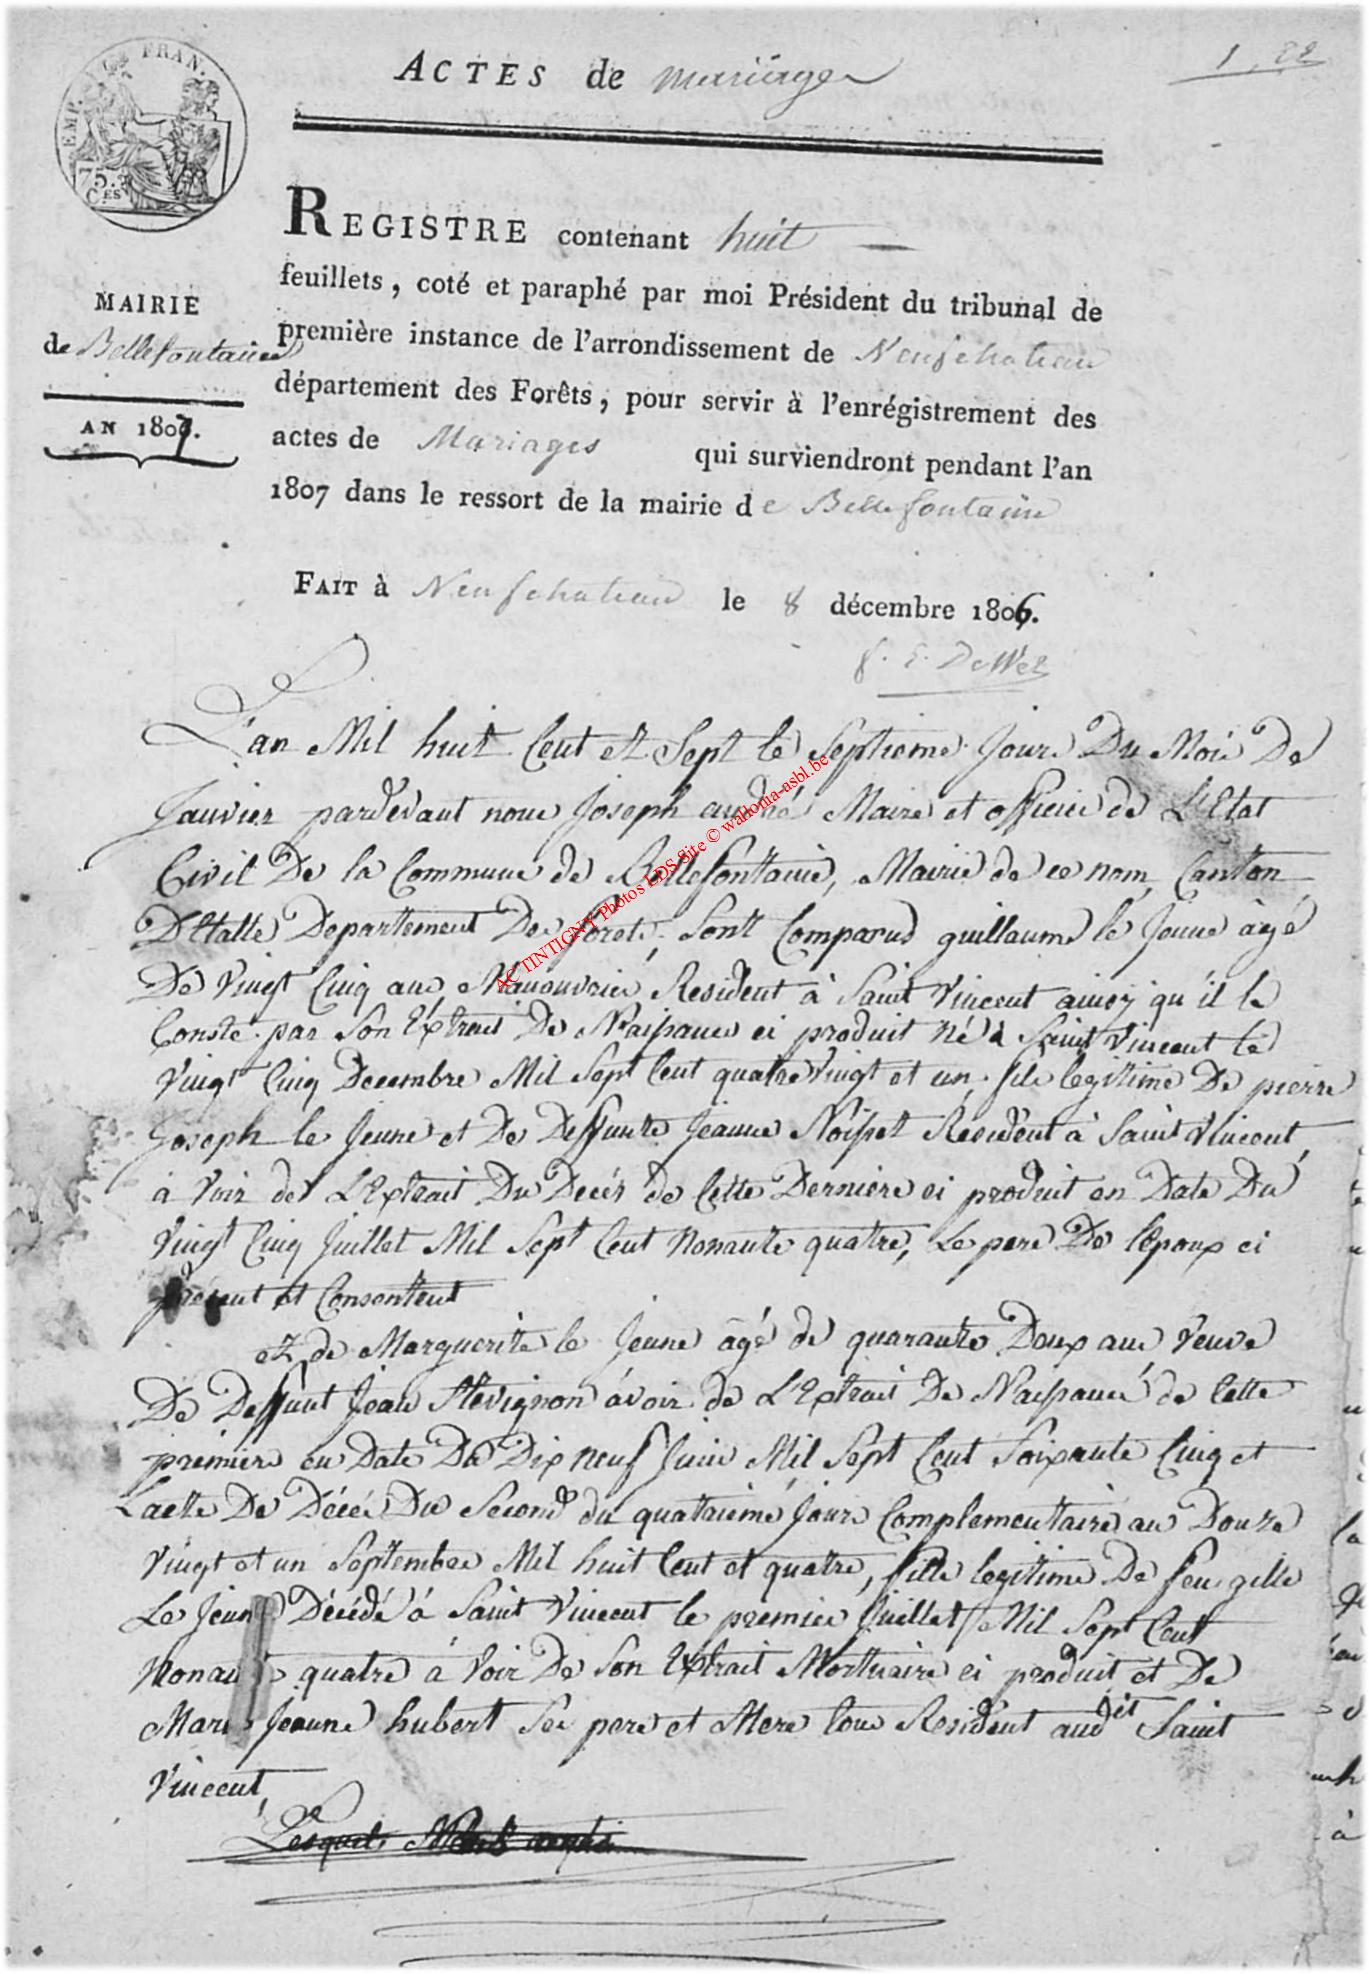 1 . 82
EMP. FRAN.
75. CES
ACTES de mariages
REGISTRE contenant huit
feuillets, coté et paraphé par moi Président du tribunal de
première instance de l'arrondissement de Neufchateau
département des Forêts, pour servir à l'enrégistrement des
actes de Mariages qui surviendront pendant l'an
1807 dans le ressort de la mairie de Bellefontaine
MAIRIE
de Bellefontaine
AN 1807.
FAIT à Neufchateau le 8 décembre 1806.
L'an Mil huit Cent et Sept le Septieme Jour Du Mois De
Janvier pardevant nous Joseph andré Maire et officier de L'Etat
Civil De la Commune de Bellefontaine, Mairie de ce nom, Canton
D'Etalle Departement Des forets, Sont Comparus guillaume le Jeune âgé
De Vingt Cinq ans Manouvrier Resident à Saint Vincent ainsy qu il le
Conste par Son Extrait De Naissance ci produit né à Saint Vincent le
Vingt Cinq Decembre Mil Sept Cent quatre Vingt et un, fils legitime De pierre
Joseph le Jeune et De Deffunte Jeanne Noisset Resident à Saint Vincent,
a Voir de L'Extrait Du Decés de Cette Derniere ci produit en Date Du
Vingt Cinq Juillet Mil Sept Cent Nonante quatre, Le pere De l'Epoux ci
présent et Consentent
et de Marguerite le Jeune âgé de quarante Deux ans Veuve
De Deffunt Jean Hevignon àvoir de L'Extrait De Naissance de Cette
premiere en Date Du Dix neuf Juin Mil Sept Cent Soixante Cinq et
L'acte De Décés Du Second du quatrieme Jour Complementaire an Douze
Vingt et un Septembre Mil huit Cent et quatre, fille legitime De feu gille
Le Jeune Décédé à Saint Vincent le premier Juillet Mil Sept Cent
Nonante quatre à Voir De Son Extrait Mortuaire ci produit et De
Marie Jeanne hubert Ses pere et Mere tous Resident audit Saint
Vincent,
Lesquels
AC TINTIGNY Photos LDS Site © wallonia-asbl.be